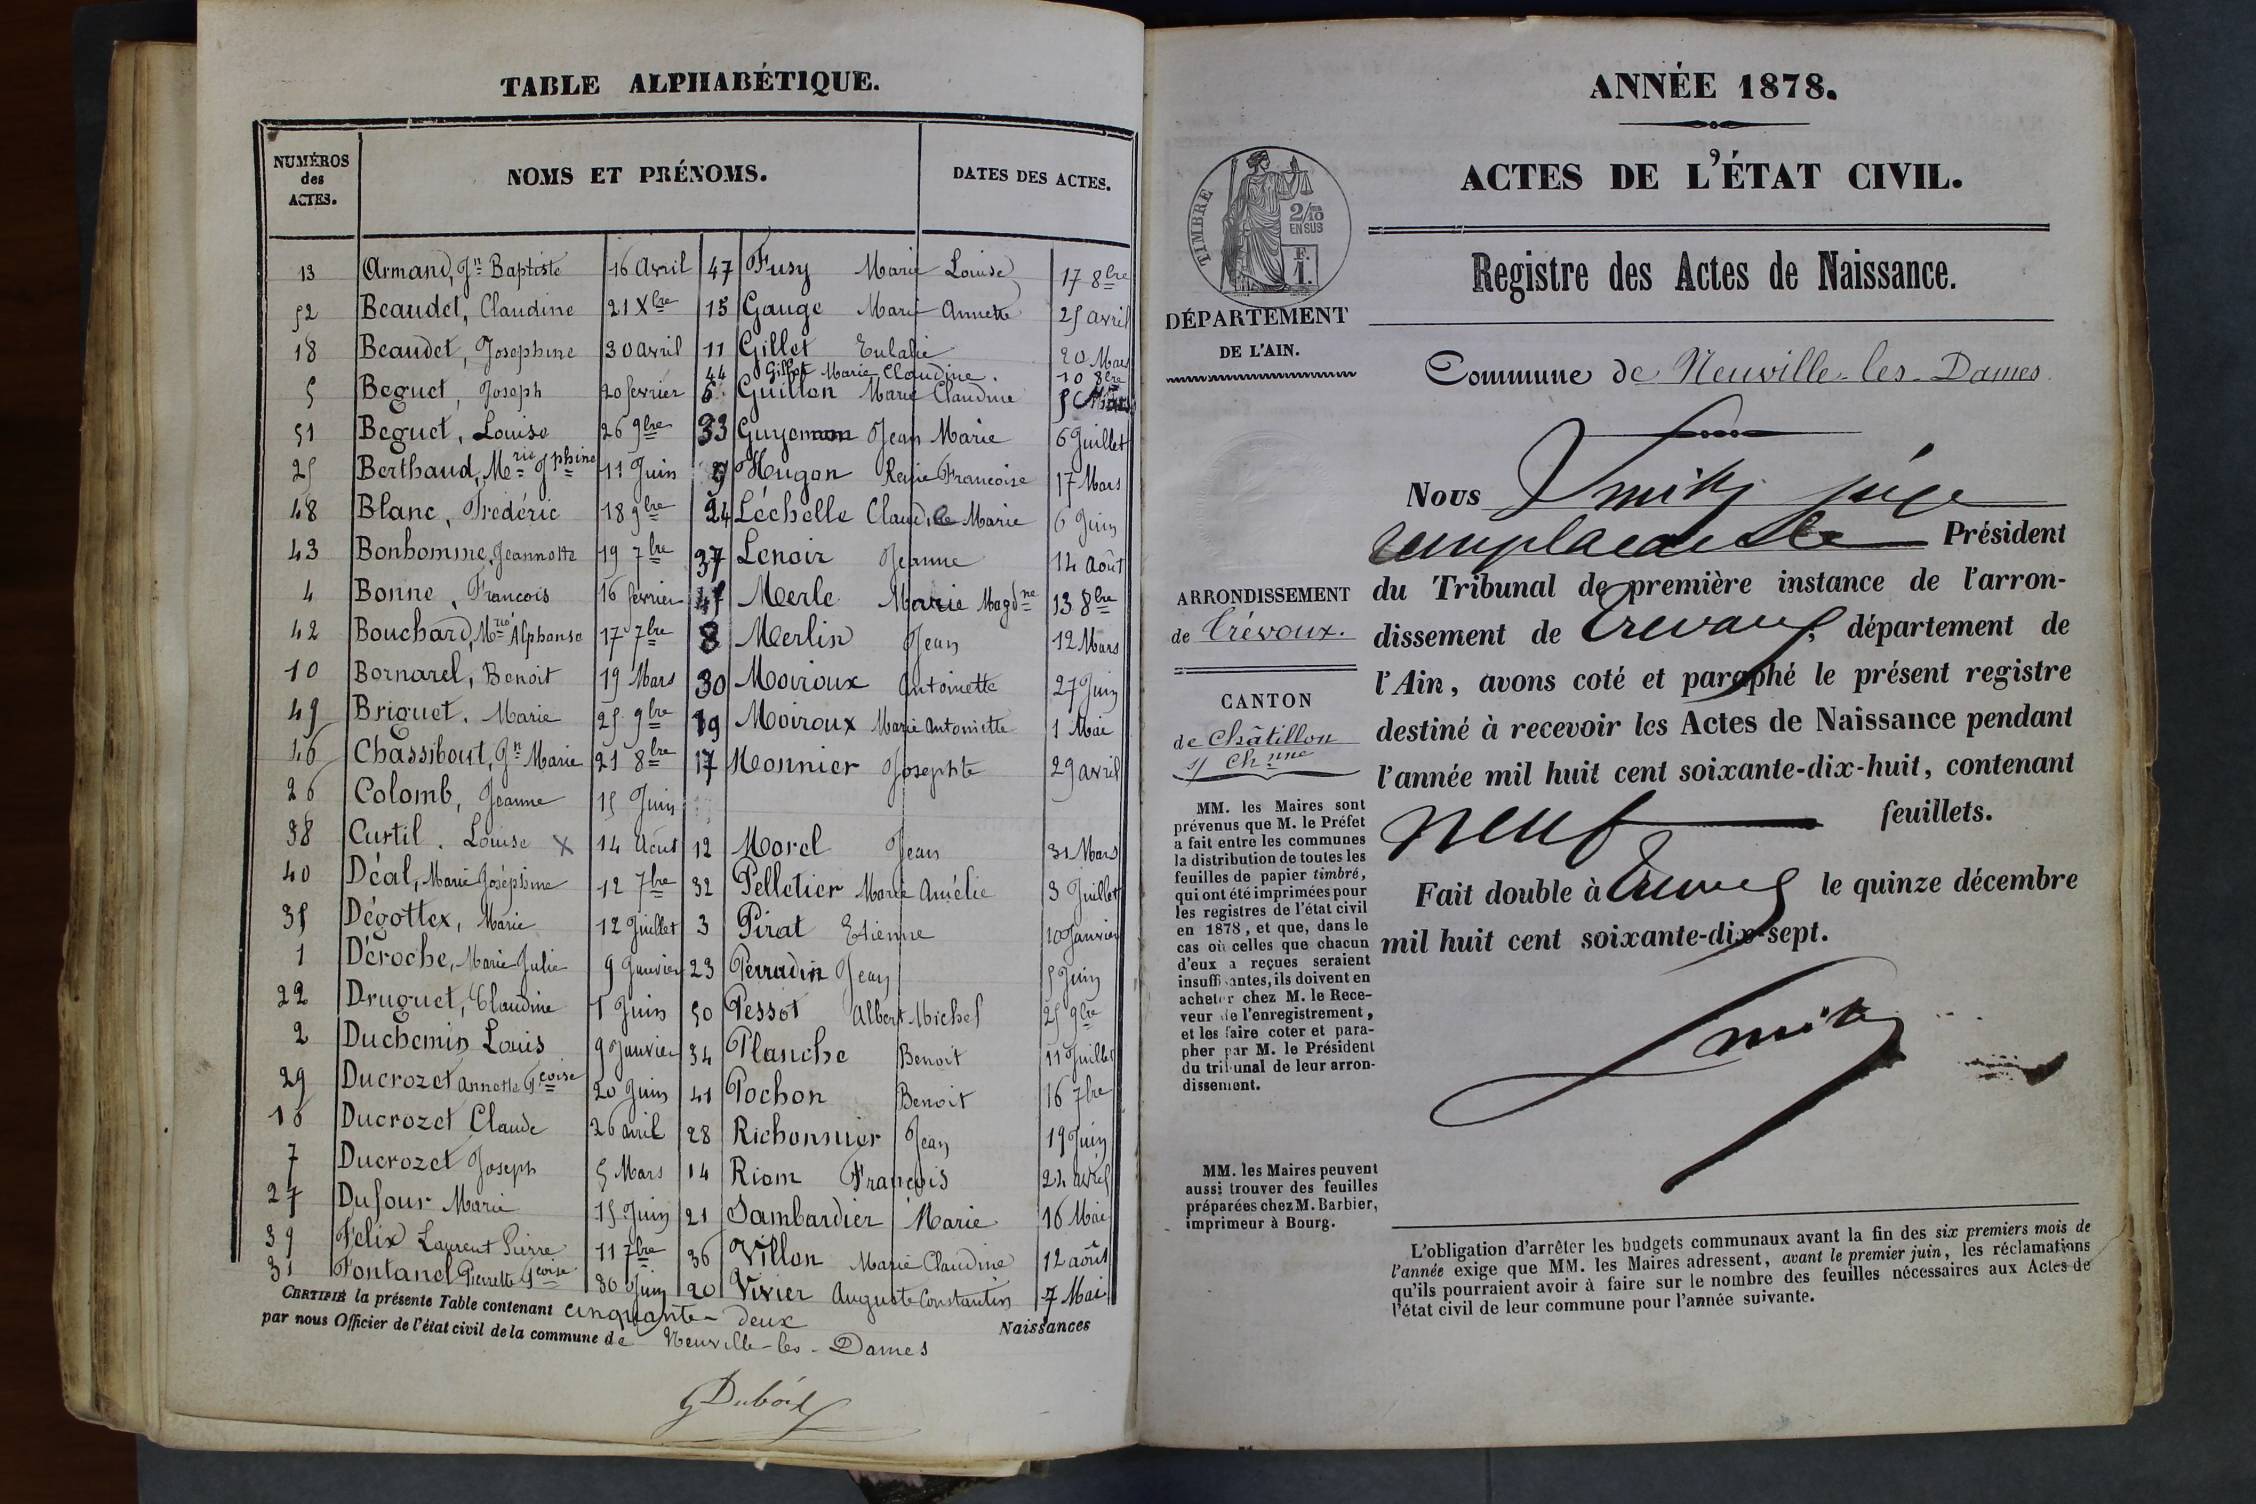 TABLE ALPHABÉTIQUE.
NUMÉROS des ACTES. NOMS ET PRÉNOMS. DATES DES ACTES.
13 Armand, Jn Baptiste 16 Avril
52 Beaudet, Claudine 21 Xbre
18 Beaudet, Josephine 30 avril
5 Beguet, Joseph 20 février
51 Beguet, Louise 26 9bre
25 Berthaud, Mrie Jphine 11 Juin
48 Blanc, Frédéric 18 9bre
43 Bonhomme, Jeannette 19 7bre
4 Bonne, Francois 16 fevrier
42 Bouchard, Mrie Alphonse 17 7bre
10 Bornarel, Benoit 19 Mars
49 Briguet. Marie 25 9bre
46 Chassibout, Jn Marie 21 8bre
26 Colomb, Jeanne 15 Juin
38 Curtil. Louise X 14 Août
40 Déal, Marie Joséphine 12 7bre
35 Dégottex, Marie 12 Juillet
1 Déroche, Marie Julie 9 Janvier
22 Druguet, Claudine 1 Juin
2 Duchemin Louis 9 Janvier
29 Ducrozet Annette Fcoise 20 Juin
16 Ducrozet Claude 26 avril
7 Ducrozet Joseph 5 Mars
27 Dufour Marie 15 Juin
39 Félix Laurent Pierre 11 7bre
31 Fontanel Pierrette Fcoise 30 Juin
47 Fusy Marie Louise 17 8bre
15 Gauge Marie Annette 25 avril
11 Gillet Eulalie 20 Mars
44 Gillet Marie Claudine. 10 8bre
6 Guillon Marie Claudine 5 Mars
33 Guyemon Jean Marie 6 Juillet
9 Hugon Reine Francoise 17 Mars
24 Léchelle Claudile Marie 6 Juin
37 Lenoir Jeanne 14 août
Merle Marie Magdne 13 8bre
8 Merlin Jean 12 Mars
30 Moiroux Antoinette 27 Juin
19 Moiroux Marie Antoinette 1 Mai
17 Monnier Josephte 29 avril
12 Morel Jean 31 Mars
32 Pelletier Marie Amélie 3 Juillet
3 Pirat Etienne 10 Janvier
23 Perradin Jean 5 Juin
50 Pessot Albert Michel 25 9bre
34 Planche Benoit 11 Juillet
41 Pochon Benoit 16 7bre
28 Richonnier Jean 19 Juin
14 Riom François 24 avril
21 Sambardier Marie 16 Mai
36 Villon Marie Claudine 12 août
20 Vivier Auguste Constantin 7 Mai
CERTIFIÉ la présente Table contenant cinquante-deux Naissances
par nous Officier de l'état civil de la commune de Neuville-les-Dames
G Dubois
ANNÉE 1878.
ACTES DE L'ÉTAT CIVIL.
Registre des Actes de Naissance.
TIMBRE
2/10
EN SUS
F.
1.
DÉPARTEMENT
DE L'AIN.
ARRONDISSEMENT
de Trévoux.
CANTON
de Châtillon
s/ Chnne
MM. les Maires sont
prévenus que M. le Préfet
a fait entre les communes
la distribution de toutes les
feuilles de papier timbré,
qui ont été imprimées pour
les registres de l'état civil
en 1878, et que, dans le
cas où celles que chacun
d'eux a reçues seraient
insuffisantes, ils doivent en
acheter chez M. le Rece-
veur de l'enregistrement,
et les faire coter et para-
pher par M. le Président
du tribunal de leur arron-
dissement.
MM. les Maires peuvent
aussi trouver des feuilles
préparées chez M. Barbier,
imprimeur à Bourg.
Commune de Neuville-les-Dames
Nous Smith juge
remplacant le Président
du Tribunal de première instance de l'arron-
dissement de Trevoux, département de
l'Ain, avons coté et paraphé le présent registre
destiné à recevoir les Actes de Naissance pendant
l'année mil huit cent soixante-dix-huit, contenant
neuf feuillets.
Fait double à Trevoux le quinze décembre
mil huit cent soixante-dix-sept.
Smith
L'obligation d'arrêter les budgets communaux avant la fin des six premiers mois de
l'année exige que MM. les Maires adressent, avant le premier juin, les réclamations
qu'ils pourraient avoir à faire sur le nombre des feuilles nécessaires aux Actes de
l'état civil de leur commune pour l'année suivante.